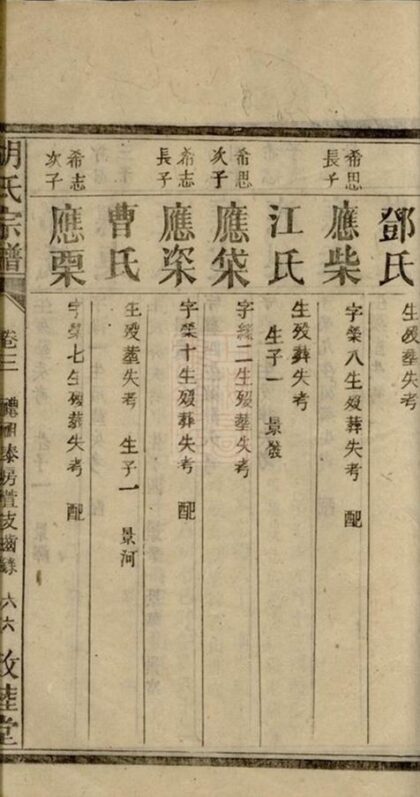 鄧氏 生殁葬失考
希思長子 應柴 字榮八生殁葬失考 配
江氏 生殁葬失考 生子一 景發
希思次子 應 字 二生殁葬失考
希志長子 應 字榮十生殁葬失考 配
曹氏 生殁葬失考 生子一 景河
希志次子 應栗 字榮七生殁葬失考 配
胡氏宗譜 卷三 房 支齒錄 六六 敦睦堂